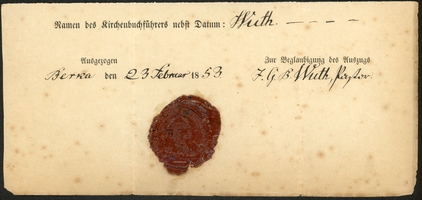 Namen des Kirchenbuchführers nebst Datum: Wuth. – – – –
Ausgezogen
Berka den 23 Februar 1853
Zur Beglaubigung des Auszugs
F. G. B. Wuth, Pastor.